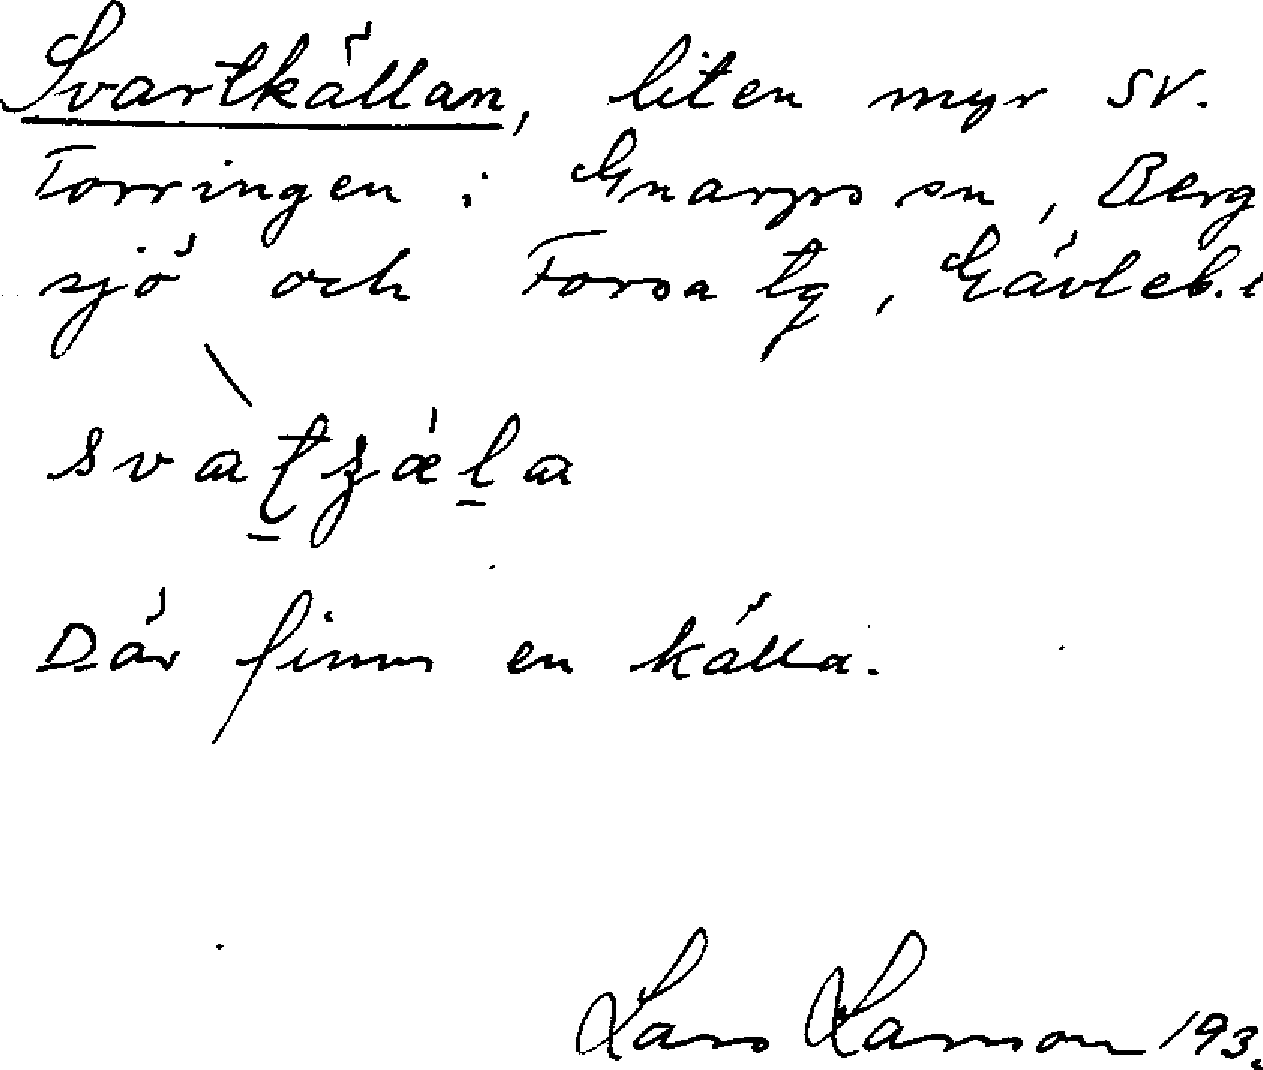 Svartkällan, liten myr SV.
Torringen i Gnarps sn, Berg
sjö och Forsa tg, Gävleb.
Där finns en källa.
Lars Larsson 193